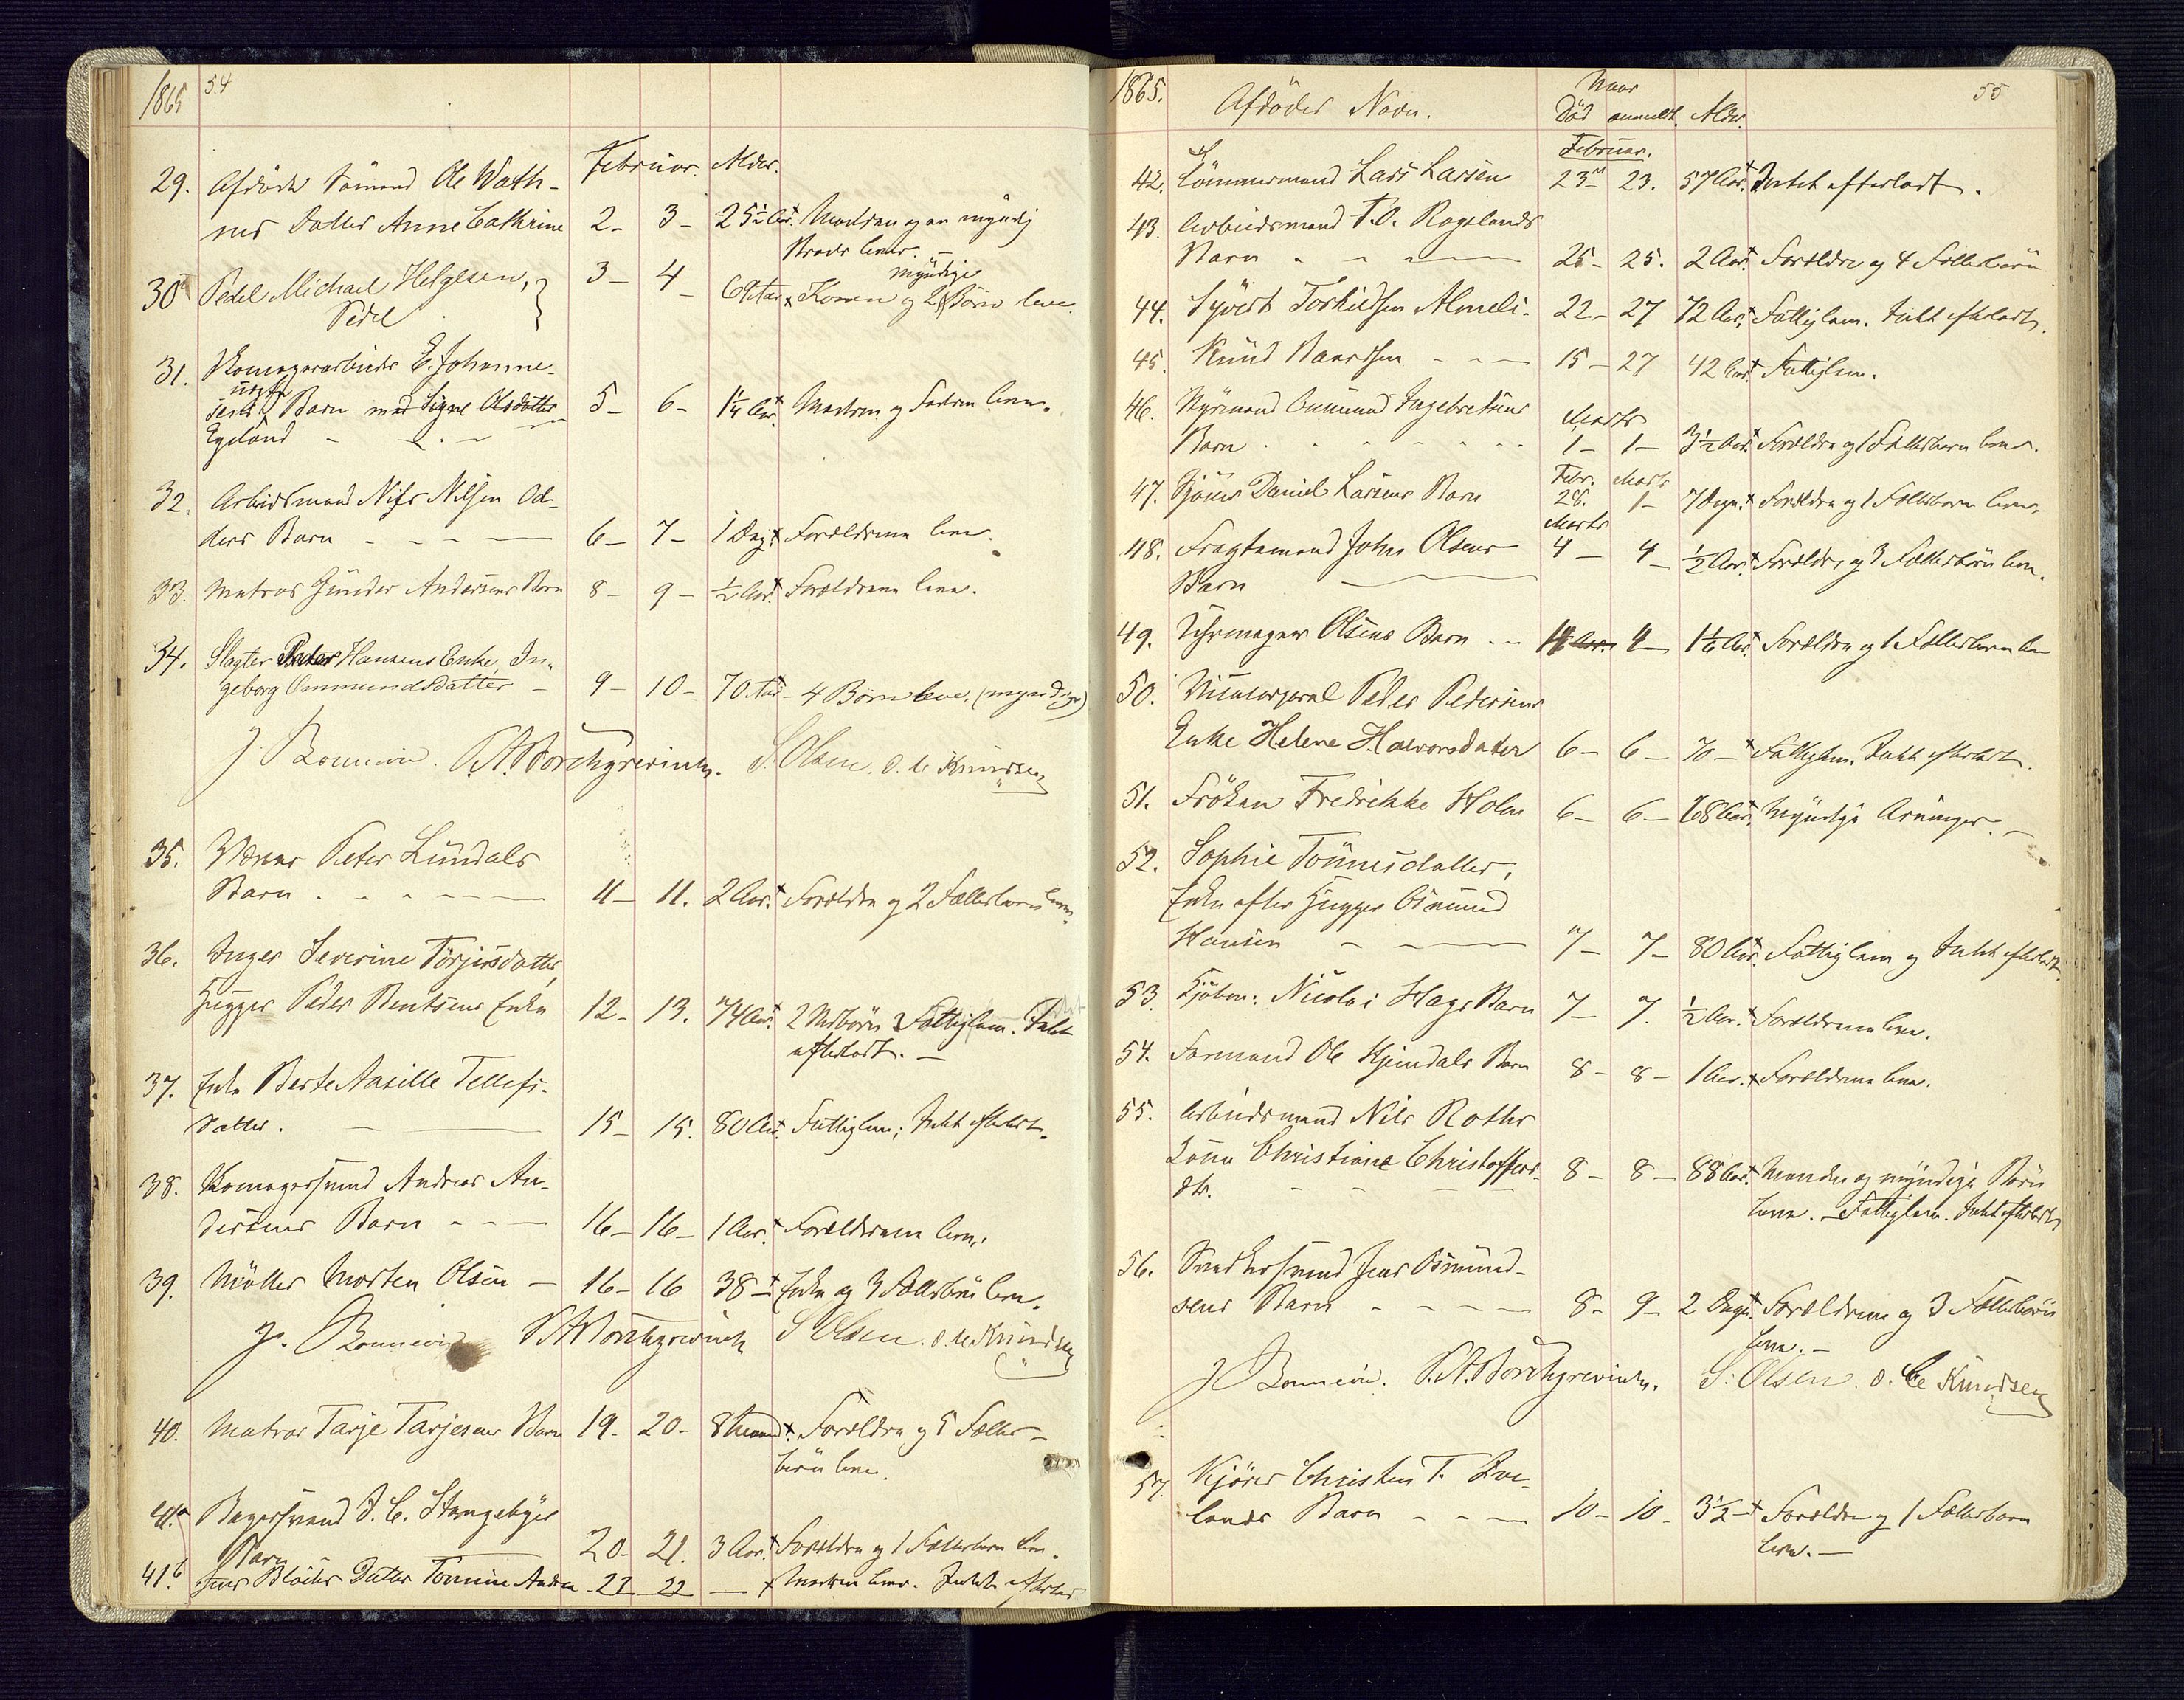 1865 54
Februar. Alder.
29. Afdöde Sömand Ole Wath-
nes Datter Anne Cathrine 2 - 3 - 25½ Aar. Moderen og en myndig
Broder lever. -
30 Pedel Michael Helgesen, 3 - 4 - 69 Aar x Konen og 2 myndige Börn leve.
Pedel
31. Skomagerarbeider E. Johanne-
sens uægte Barn med Signe Olsdatter 5 - 6 - 1¼ Aar. Moderen og Faderen leve.
Egeland - - -
32. Arbeidsmand Nils Nilsen Od-
ders Barn - - - 6 - 7 - 1 Dag x Forældrene leve.
33. Matros Gunder Andersens Barn 8 - 9 - ½ Aar. Forældrene leve.
34. Slagter Peder Hansens Enke, In-
geborg Ommundsdatter - 9 - 10 - 70 Aar - 4 Börn leve, (myndige)
J. Bonnevie. P. A. Borchgrevink. S. Olsen. O. C. Knudsen
35. Peter Lundals
Barn - - - 11 - 11. 2 Aar. Forældre og 2 Fællesbørn leve.
36. Inger Severine Törjesdatter,
Hugger Peder Bentsens Enke 12 - 13. 74 Aar. 2 Fattiglem. Intet
efterladt. -
37. Enke Berte Aasille Tellefs-
datter. - 15 - 15. 80 Aar. Fattiglem; Intet efterladt.
38. Skomagersvend Andreas An-
dersens Barn - - - 16 - 16 - 1 Aar. Forældrene leve.
39. Möller Morten Olsen - 16 - 16 38 - + Enke og 3 Fællesbörn leve.
J. Bonnevie P. A. Borchgrevink S. Olsen. O. C. Knudsen
40. Matros Tarje Tarjesens Barn 19 - 20 - 8 Maaned x Forældre og 5 Fælles-
börn leve.
41.a Bagersvend J. C. Stangebyes
Barn 20 - 21. 3 Aar. Forældre og 1 Fællesbarn leve.
41.b Datter Tomine Andrea - 22 22 - x Moderen lever. Intet efterladt
1865. Afdödes Navn. Naar Död anmeldt. Alder. 55
Februar.
42. Tömmermand Lars Larsen 23 - 23. 57 Aar. Intet efterladt.
43. Arbeidsmand T. O. Rogelands
Barn - - - 25 - 25. 2 Aar. Forældre og 4 Fællesbörn
44. Syvert Torkildsen Almeli - 22 - 27 72 Aar. Fattiglem. Intet efterladt.
45. Knud Baardsen - - - 15 - 27 42 Aar. Fattiglem.
46. Styrmand Gunmund Ingebretsens
Marts
Barn - - - 1 - 1 - 3½ Aar. Forældre og 1 Fællesbarn lever.
Febr. Marts
47. Kjörer Daniel Larsens Barn 28. 1 - 7 Dage. x Forældre og 1 Fællesbarn lever.
Marts
48. Fragtemand John Olsens 4 - 4 - ½ Aar. Forældre og 3 Fællesbörn leve.
Barn
49. Uhrmager Olsens Barn - - 4 - 1½ Aar. Forældre og 1 Fællesbarn leve
50. Peder Pedersens
Enke Helene Halvorsdatter 6 - 6 - 70 - + Fattiglem. Intet efterladt.
51. Fröken Fredrikke Holm 6 - 6 - 68 Aar. Myndige Arvinger. -
52. Sophie Tönnesdatter,
Enke efter Hugger Osmund
Hansen - - - 7 - 7 - 80 Aar. Fattiglem og Intet efterladt.
53. Kjöbm. Nicolai Hags Barn 7 - 7. ½ Aar. + Forældrene leve.
54. Formand Ole Hjemdals Barn 8 - 8 - 1 Aar. x Forældrene leve.
55. Arbeidsmand Nils Roths
Kone Christiane Christoffers- 8 - 8 - 88 Aar. Manden og myndige Börn
dtr. - - - leve. - Fattiglem. Intet efterladt
56. Snedkersvend Jens Osmund-
sens Barn - - - 8 - 9 - 2 Dage. Forældrene og 3 Fællesbörn
leve. -
J. Bonnevie. P. A. Borchgrevink. S. Olsen. O. C. Knudsen
57. Kjörer Christen T. Eve-
lands Barn - - - 10 - 10 - 3½ - + Forældre og 1 Fællesbarn
leve. -